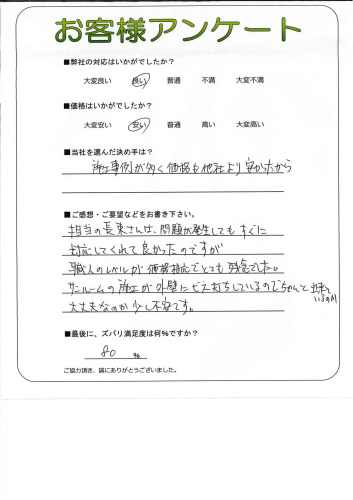 お客様アンケート
■弊社の対応はいかがでしたか?
大変良い 良い 普通 不満 大変不満
■価格はいかがでしたか?
大変安い 安い 普通 高い 大変高い
■当社を選んだ決め手は?
施工事例が多く価格も他社より安かったから
■ご感想・ご要望などをお書き下さい。
担当の長束さんは、問題が発生してもすぐに
対応してくれて良かったのですが
職人のレベルが価格対応でとても残念でした。
サンルームの施工が外壁にビス打ちしているのでちゃんと出来て
いるのか
大丈夫なのか少し不安です。
■最後に、ズバリ満足度は何%ですか?
80 %
ご協力頂き、誠にありがとうございました。